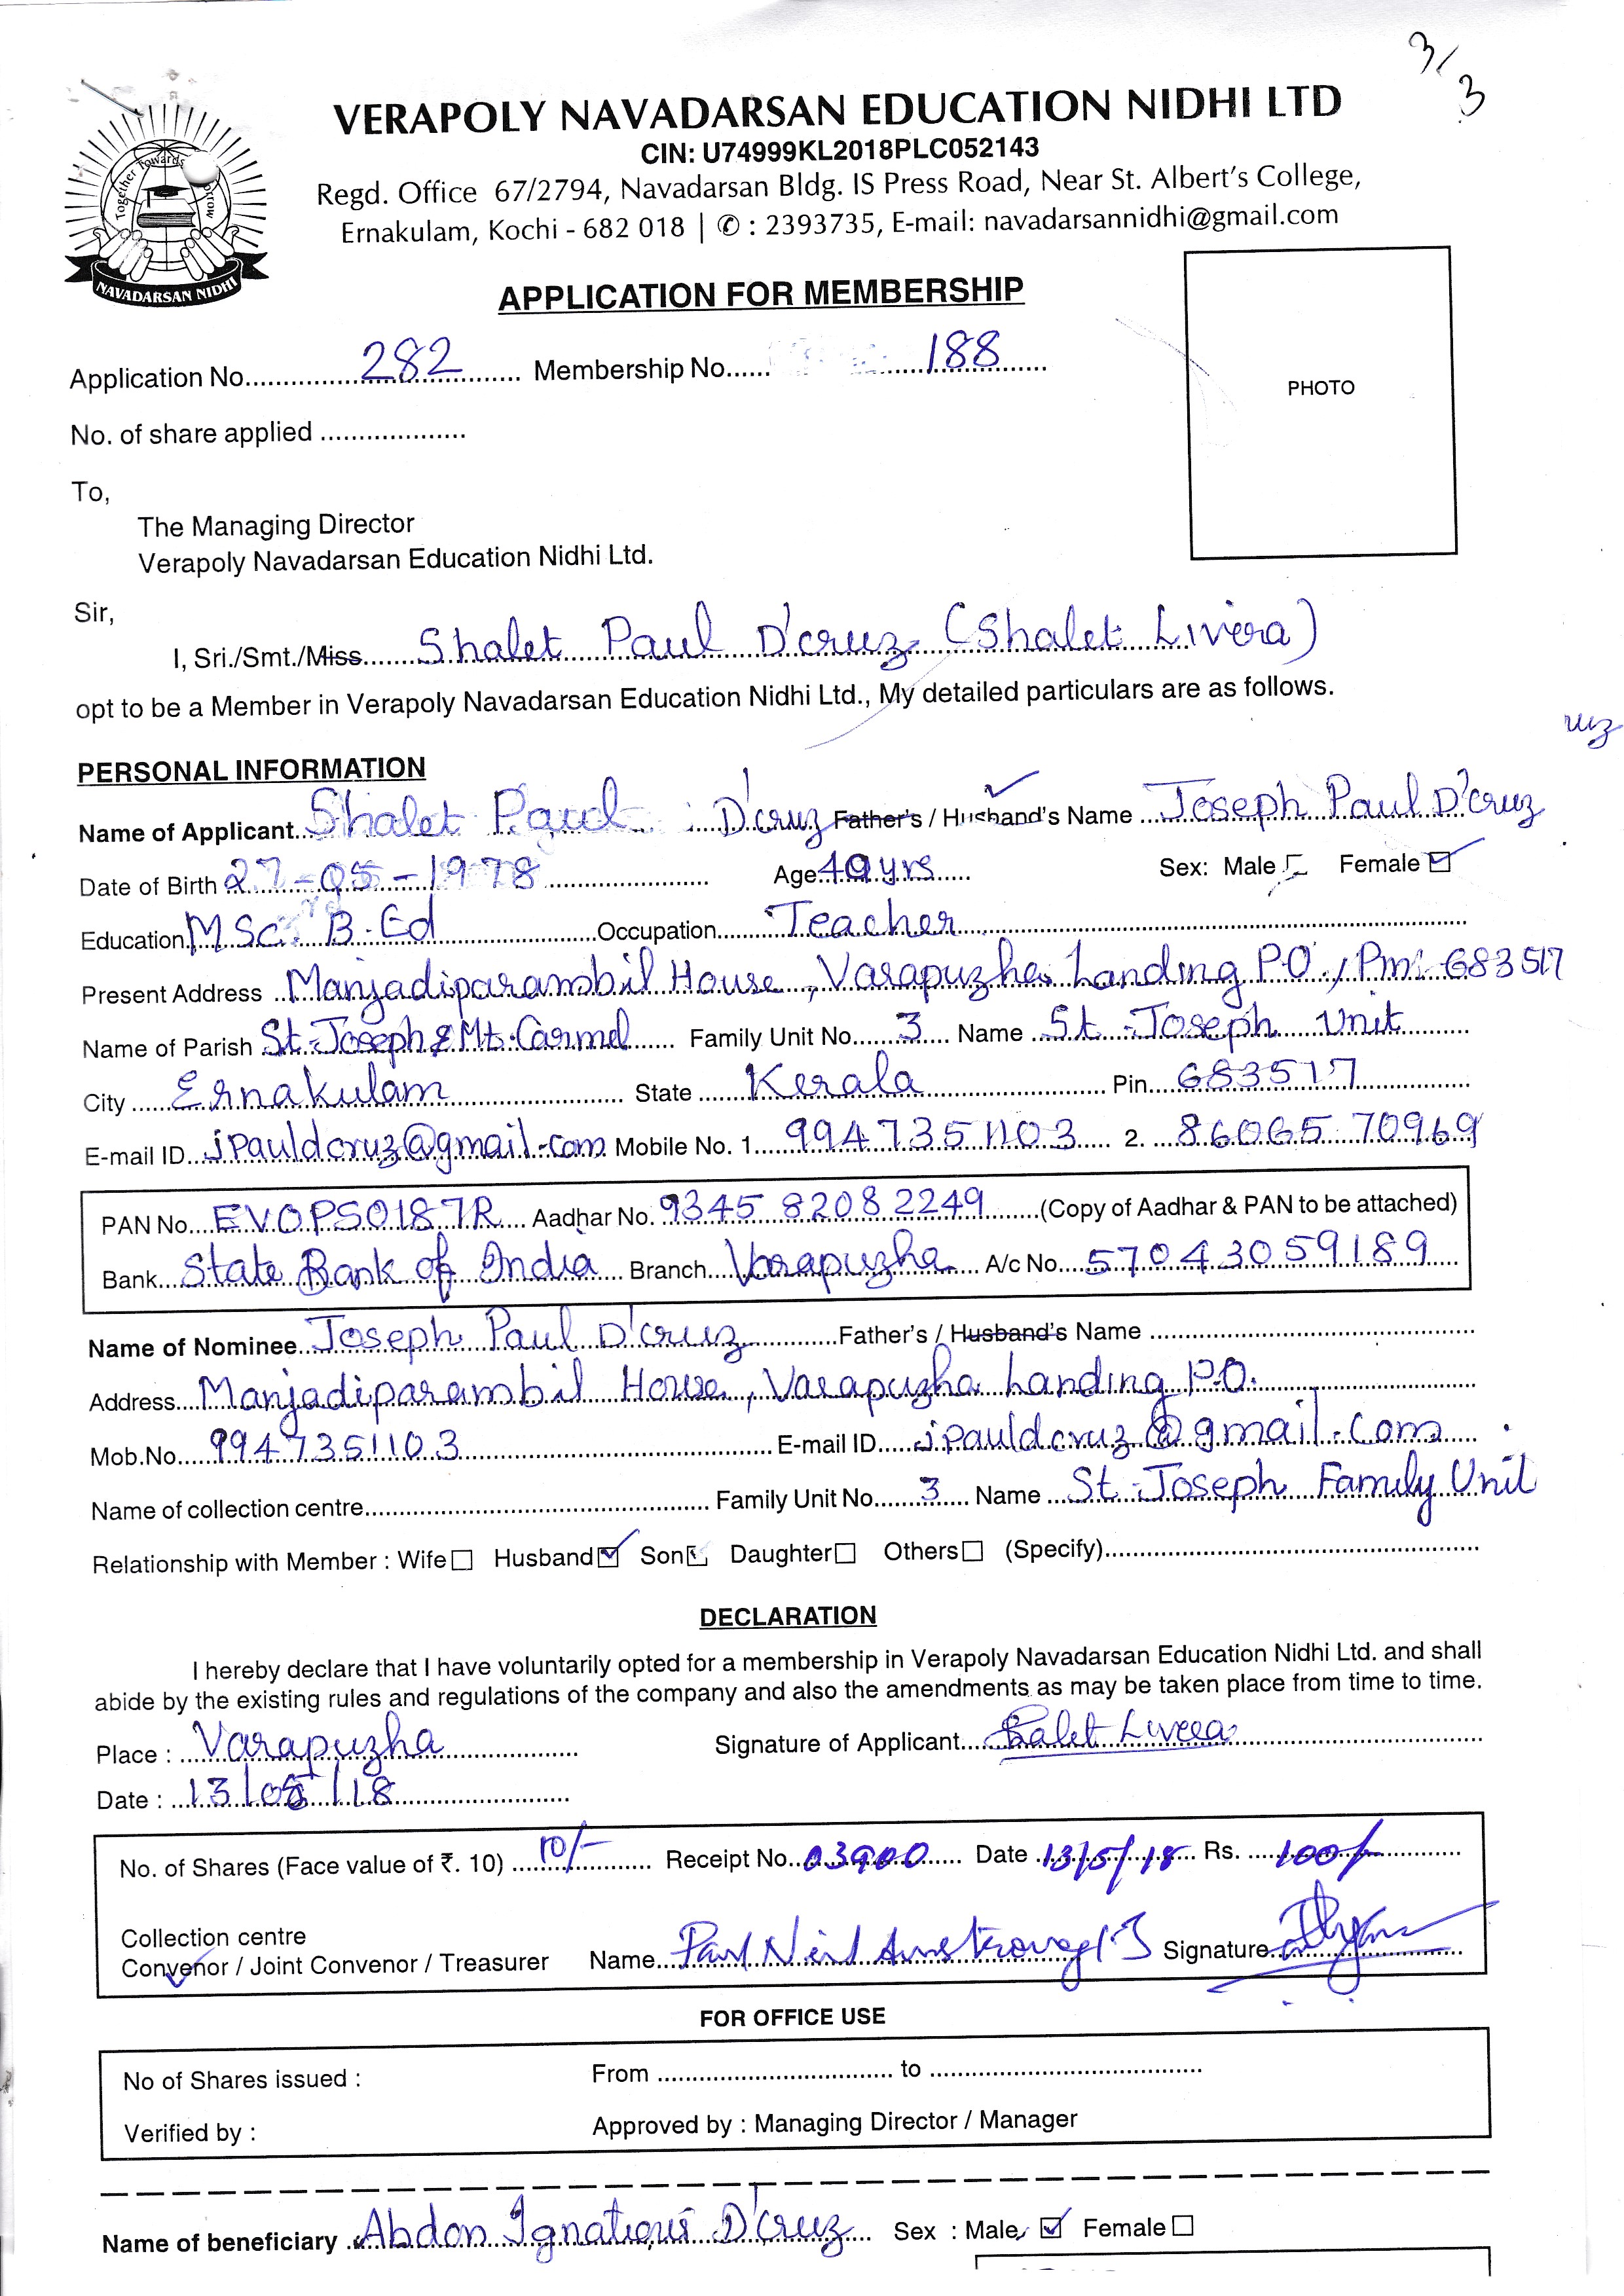 3/3
VERAPOLY NAVADARSAN EDUCATION NIDHI LTD
CIN: U74999KL2018PLC052143
Regd. Office 67/2794, Navadarsan Bldg. IS Press Road, Near St. Albert's College,
Ernakulam, Kochi - 682 018 | ✆ : 2393735, E-mail: navadarsannidhi@gmail.com
Together Towards Tomorrow
NAVADARSAN NIDHI
APPLICATION FOR MEMBERSHIP
Application No. 282 Membership No. 188
PHOTO
No. of share applied
To,
The Managing Director
Verapoly Navadarsan Education Nidhi Ltd.
Sir,
I, Sri./Smt./Miss Shalet Paul D'cruz (Shalet Livera)
opt to be a Member in Verapoly Navadarsan Education Nidhi Ltd., My detailed particulars are as follows.
uz
PERSONAL INFORMATION
Name of Applicant Shalet Paul D'cruz Father's / Husband's Name Joseph Paul D'cruz
Date of Birth 27-05-1978 Age 40 yrs Sex: Male Female
Education MSc. B.Ed Occupation Teacher
Present Address Manjadiparambil House, Varapuzha Landing P.O, Pin: 683517
Name of Parish St. Joseph & Mt. Carmel Family Unit No. 3 Name St. Joseph Unit
City Ernakulam State Kerala Pin 683517
E-mail ID jpauldcruz@gmail.com Mobile No. 1. 9947351103 2. 86065 70969
PAN No. EVOPS0187R Aadhar No. 9345 8208 2249 (Copy of Aadhar & PAN to be attached)
Bank State Bank of India Branch Varapuzha A/c No. 57043059189
Name of Nominee Joseph Paul D'cruz Father's / Husband's Name
Address Manjadiparambil House, Varapuzha Landing P.O.
Mob.No. 9947351103 E-mail ID jpauldcruz@gmail.com
Name of collection centre Family Unit No. 3 Name St. Joseph Family Unit
Relationship with Member : Wife Husband Son Daughter Others (Specify)
DECLARATION
I hereby declare that I have voluntarily opted for a membership in Verapoly Navadarsan Education Nidhi Ltd. and shall
abide by the existing rules and regulations of the company and also the amendments as may be taken place from time to time.
Place : Varapuzha Signature of Applicant Shalet Livera
Date : 13/05/18
No. of Shares (Face value of ₹. 10) 10/- Receipt No. 03900 Date 13/5/18 Rs. 100/-
Collection centre
Convenor / Joint Convenor / Treasurer Name Paul Neil Armstrong Signature
FOR OFFICE USE
No of Shares issued : From to
Verified by : Approved by : Managing Director / Manager
Name of beneficiary Abdon Ignatious D'cruz Sex : Male Female